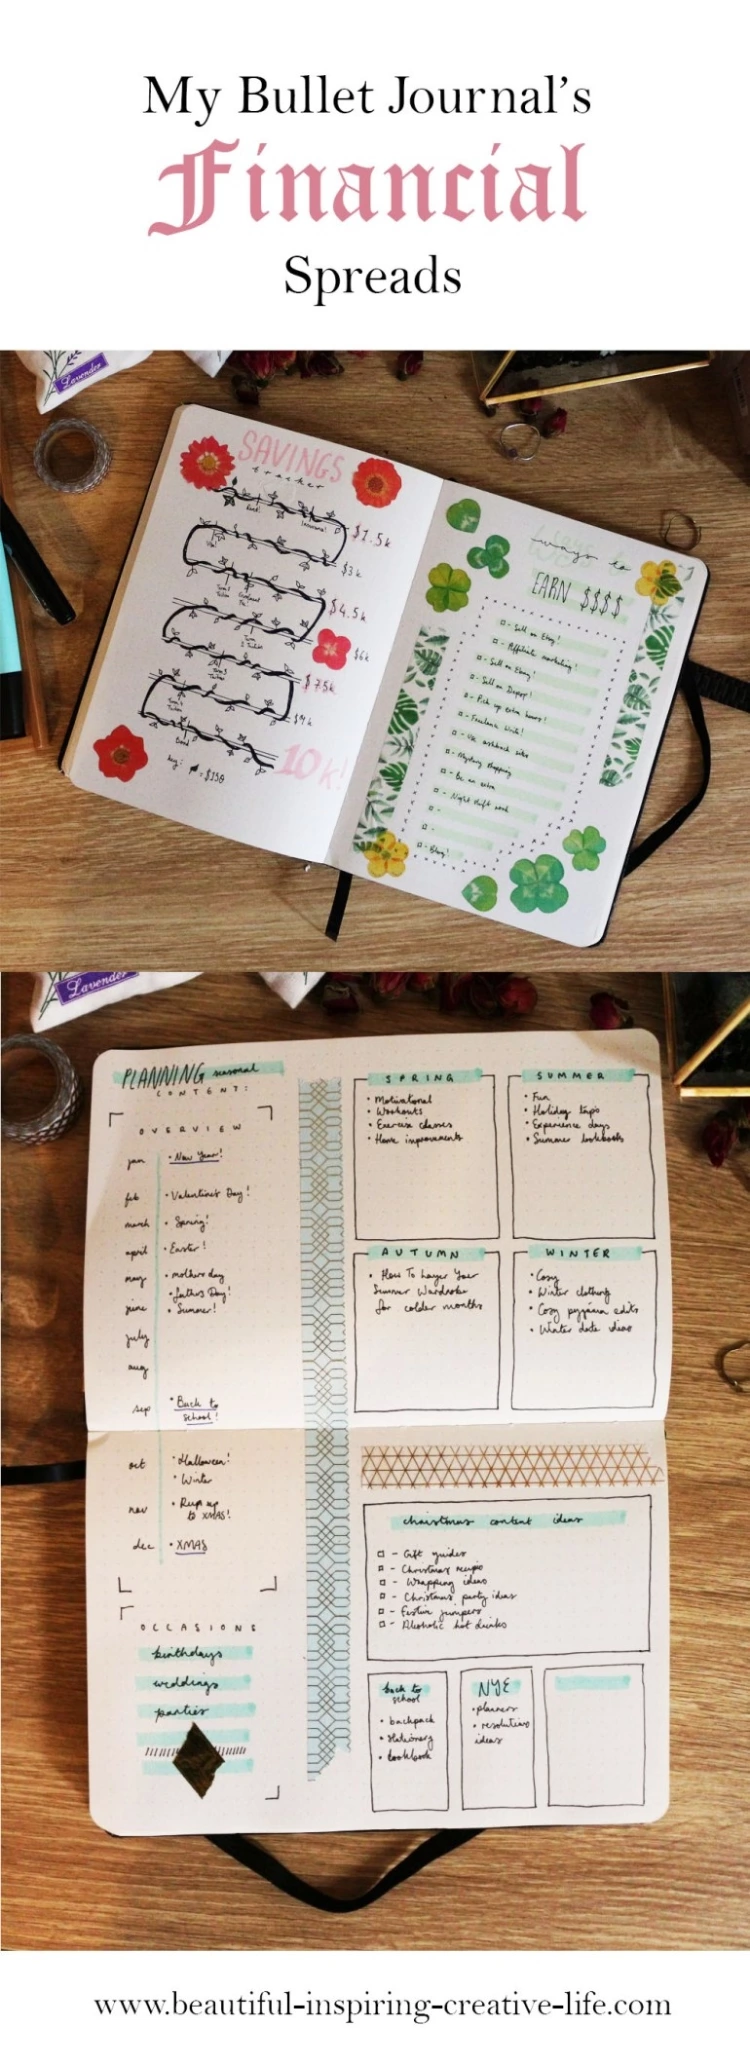 My Bullet Journal's
Financial
Spreads
Lavender
SAVINGS
tracker
$1.5k
$3k
$4.5k
$6k
$7.5k
$9k
10k!
key: = $150
ways to
EARN $$$$
- Sell on Etsy!
- Affiliate marketing!
- Sell on Ebay!
- Sell on Depop!
- Pick up extra hours!
- Freelance Write!
- Use cashback sites
- Mystery shopping
- Be an extra
- Night shift work
-
-
- Blog!
Lavender
PLANNING seasonal
CONTENT:
OVERVIEW
jan • New Year!
feb • Valentines Day!
march • Spring!
april • Easter!
may • mothers day
• fathers Day!
june • Summer!
july
aug
sep • Back to
school!
oct • Halloween!
• Winter
nov • Run up
to XMAS!
dec • XMAS
OCCASIONS
birthdays
weddings
parties
SPRING
• Motivational
• Workouts
• Exercise classes
• Home improvements
SUMMER
• Fun
• Holiday tips
• Experience days
• Summer lookbooks
AUTUMN
• How To Layer Your
Summer Wardrobe
for colder months
WINTER
• Cosy
• Winter clothing
• Cosy pyjama edits
• Winter date ideas
christmas content ideas
- Gift guides
- Christmas recipes
- Wrapping ideas
- Christmas party ideas
- Festive jumpers
- Alcoholic hot drinks
back to
school
• backpack
• stationary
• lookbook
NYE
• planners
• resolutions
ideas
www.beautiful-inspiring-creative-life.com